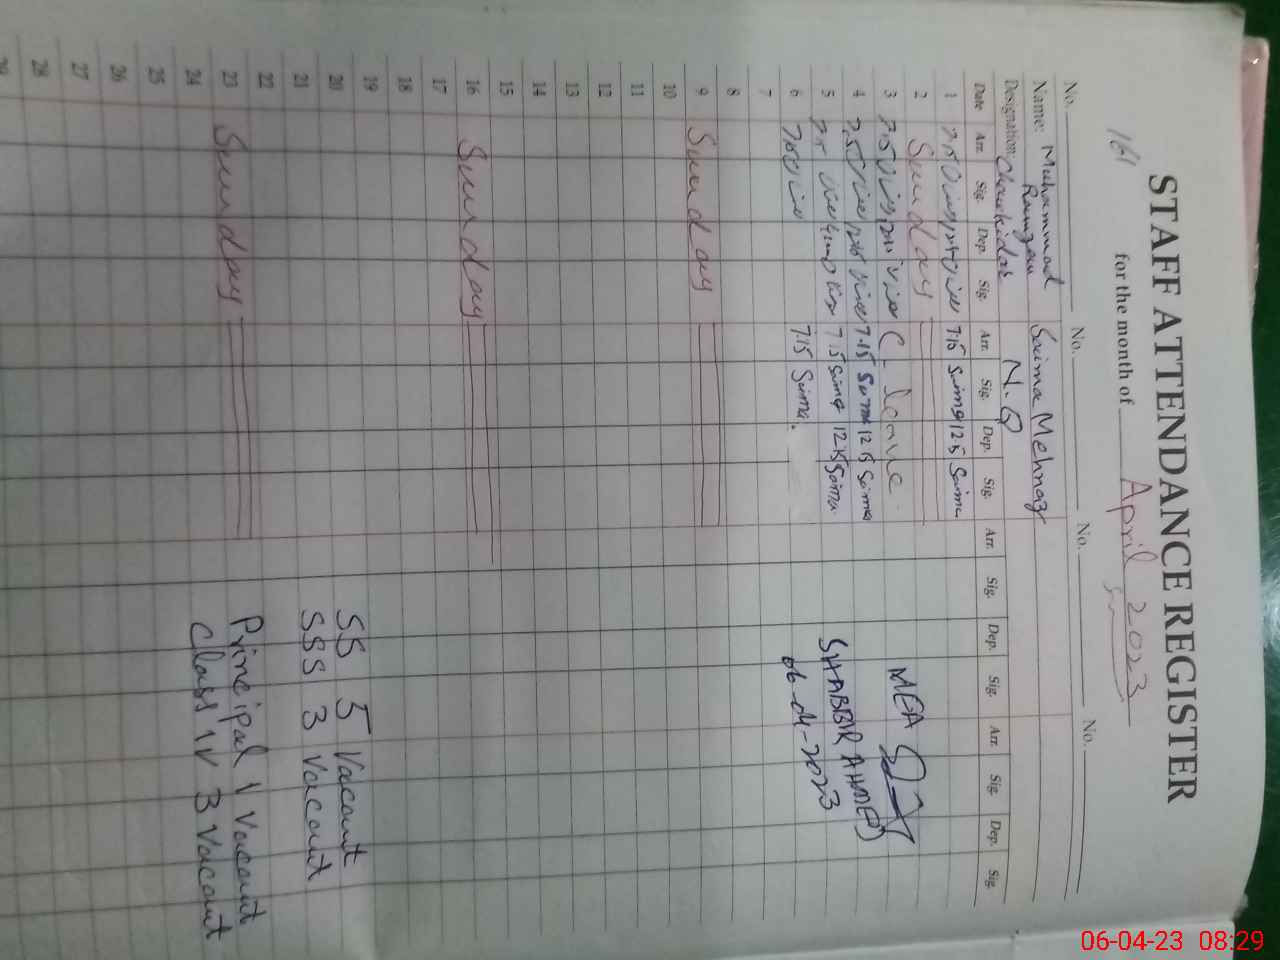 STAFF ATTENDANCE REGISTER
161 for the month of April 2023
No. No. No. No.
Name: Muhammad Ramzan Saima Mehnaz
Designation: Chowkidar N.Q
Date Arr. Sig. Dep. Sig. Arr. Sig. Dep. Sig. Arr. Sig. Dep. Sig. Arr. Sig. Dep. Sig.
1 7.15 Saima 12 Saima
2 Sunday
3 C- leave
4 7.15 Saima 12 Saima
5 7.15 Saima 12 Saima
6 7.15 Saima.
7
8
9 Sunday
10
11
12
13
14
15
16 Sunday
17
18
19
20
21
22
23 Sunday
24
25
26
27
28
29
MEA
SHABBIR AHMED
06-04-2023
SS 5 Vacant
SSS 3 Vacant
Principal 1 Vacant
Class IV 3 Vacant
06-04-23 08:29